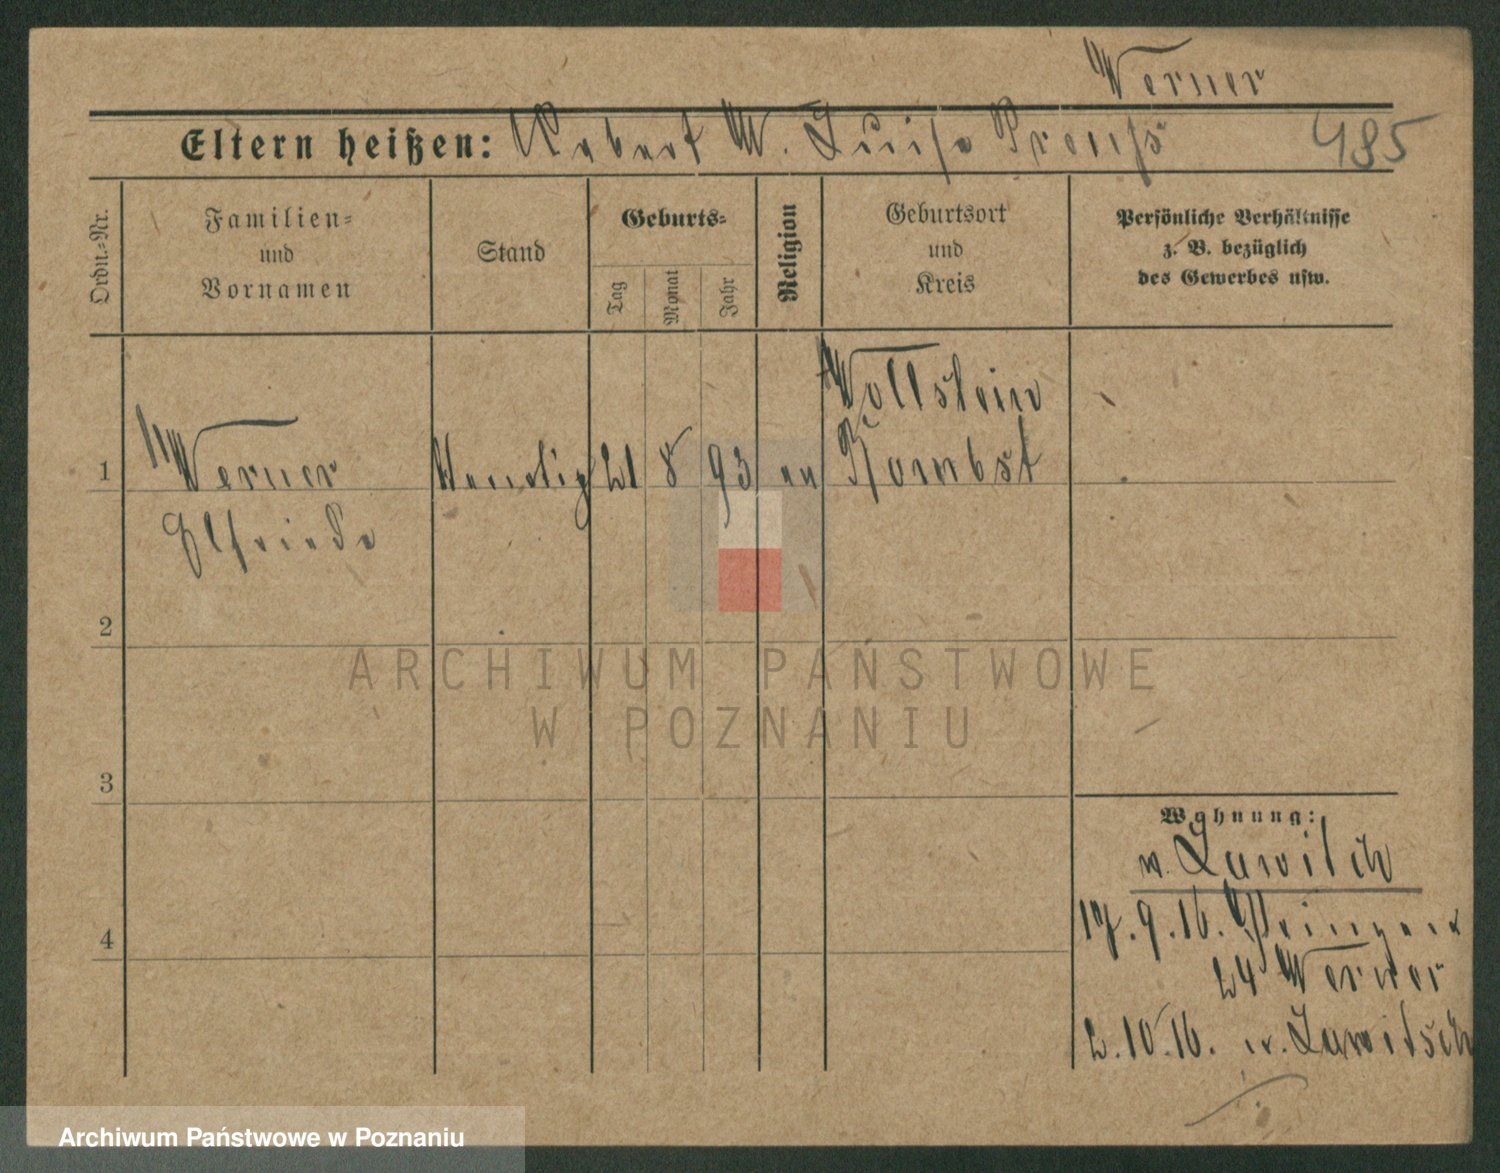 Werner
Eltern heißen: Robert W. Luise Preuß 485
Ordn.=Nr.
Familien=
und
Vornamen
Stand
Geburts=
Tag
Monat
Jahr
Religion
Geburtsort
und
Kreis
Persönliche Verhältnisse
z. B. bezüglich
des Gewerbes usw.
Wollstein
1 Werner 21 8 93 ev Bombst
Elfriede
2
3
4
Wohnung:
n. Lawitch
17. 9. 16.
24 Werner
2. 10. 16. n. Lawitsch
ARCHIWUM PAŃSTWOWE
W POZNANIU
Archiwum Państwowe w Poznaniu